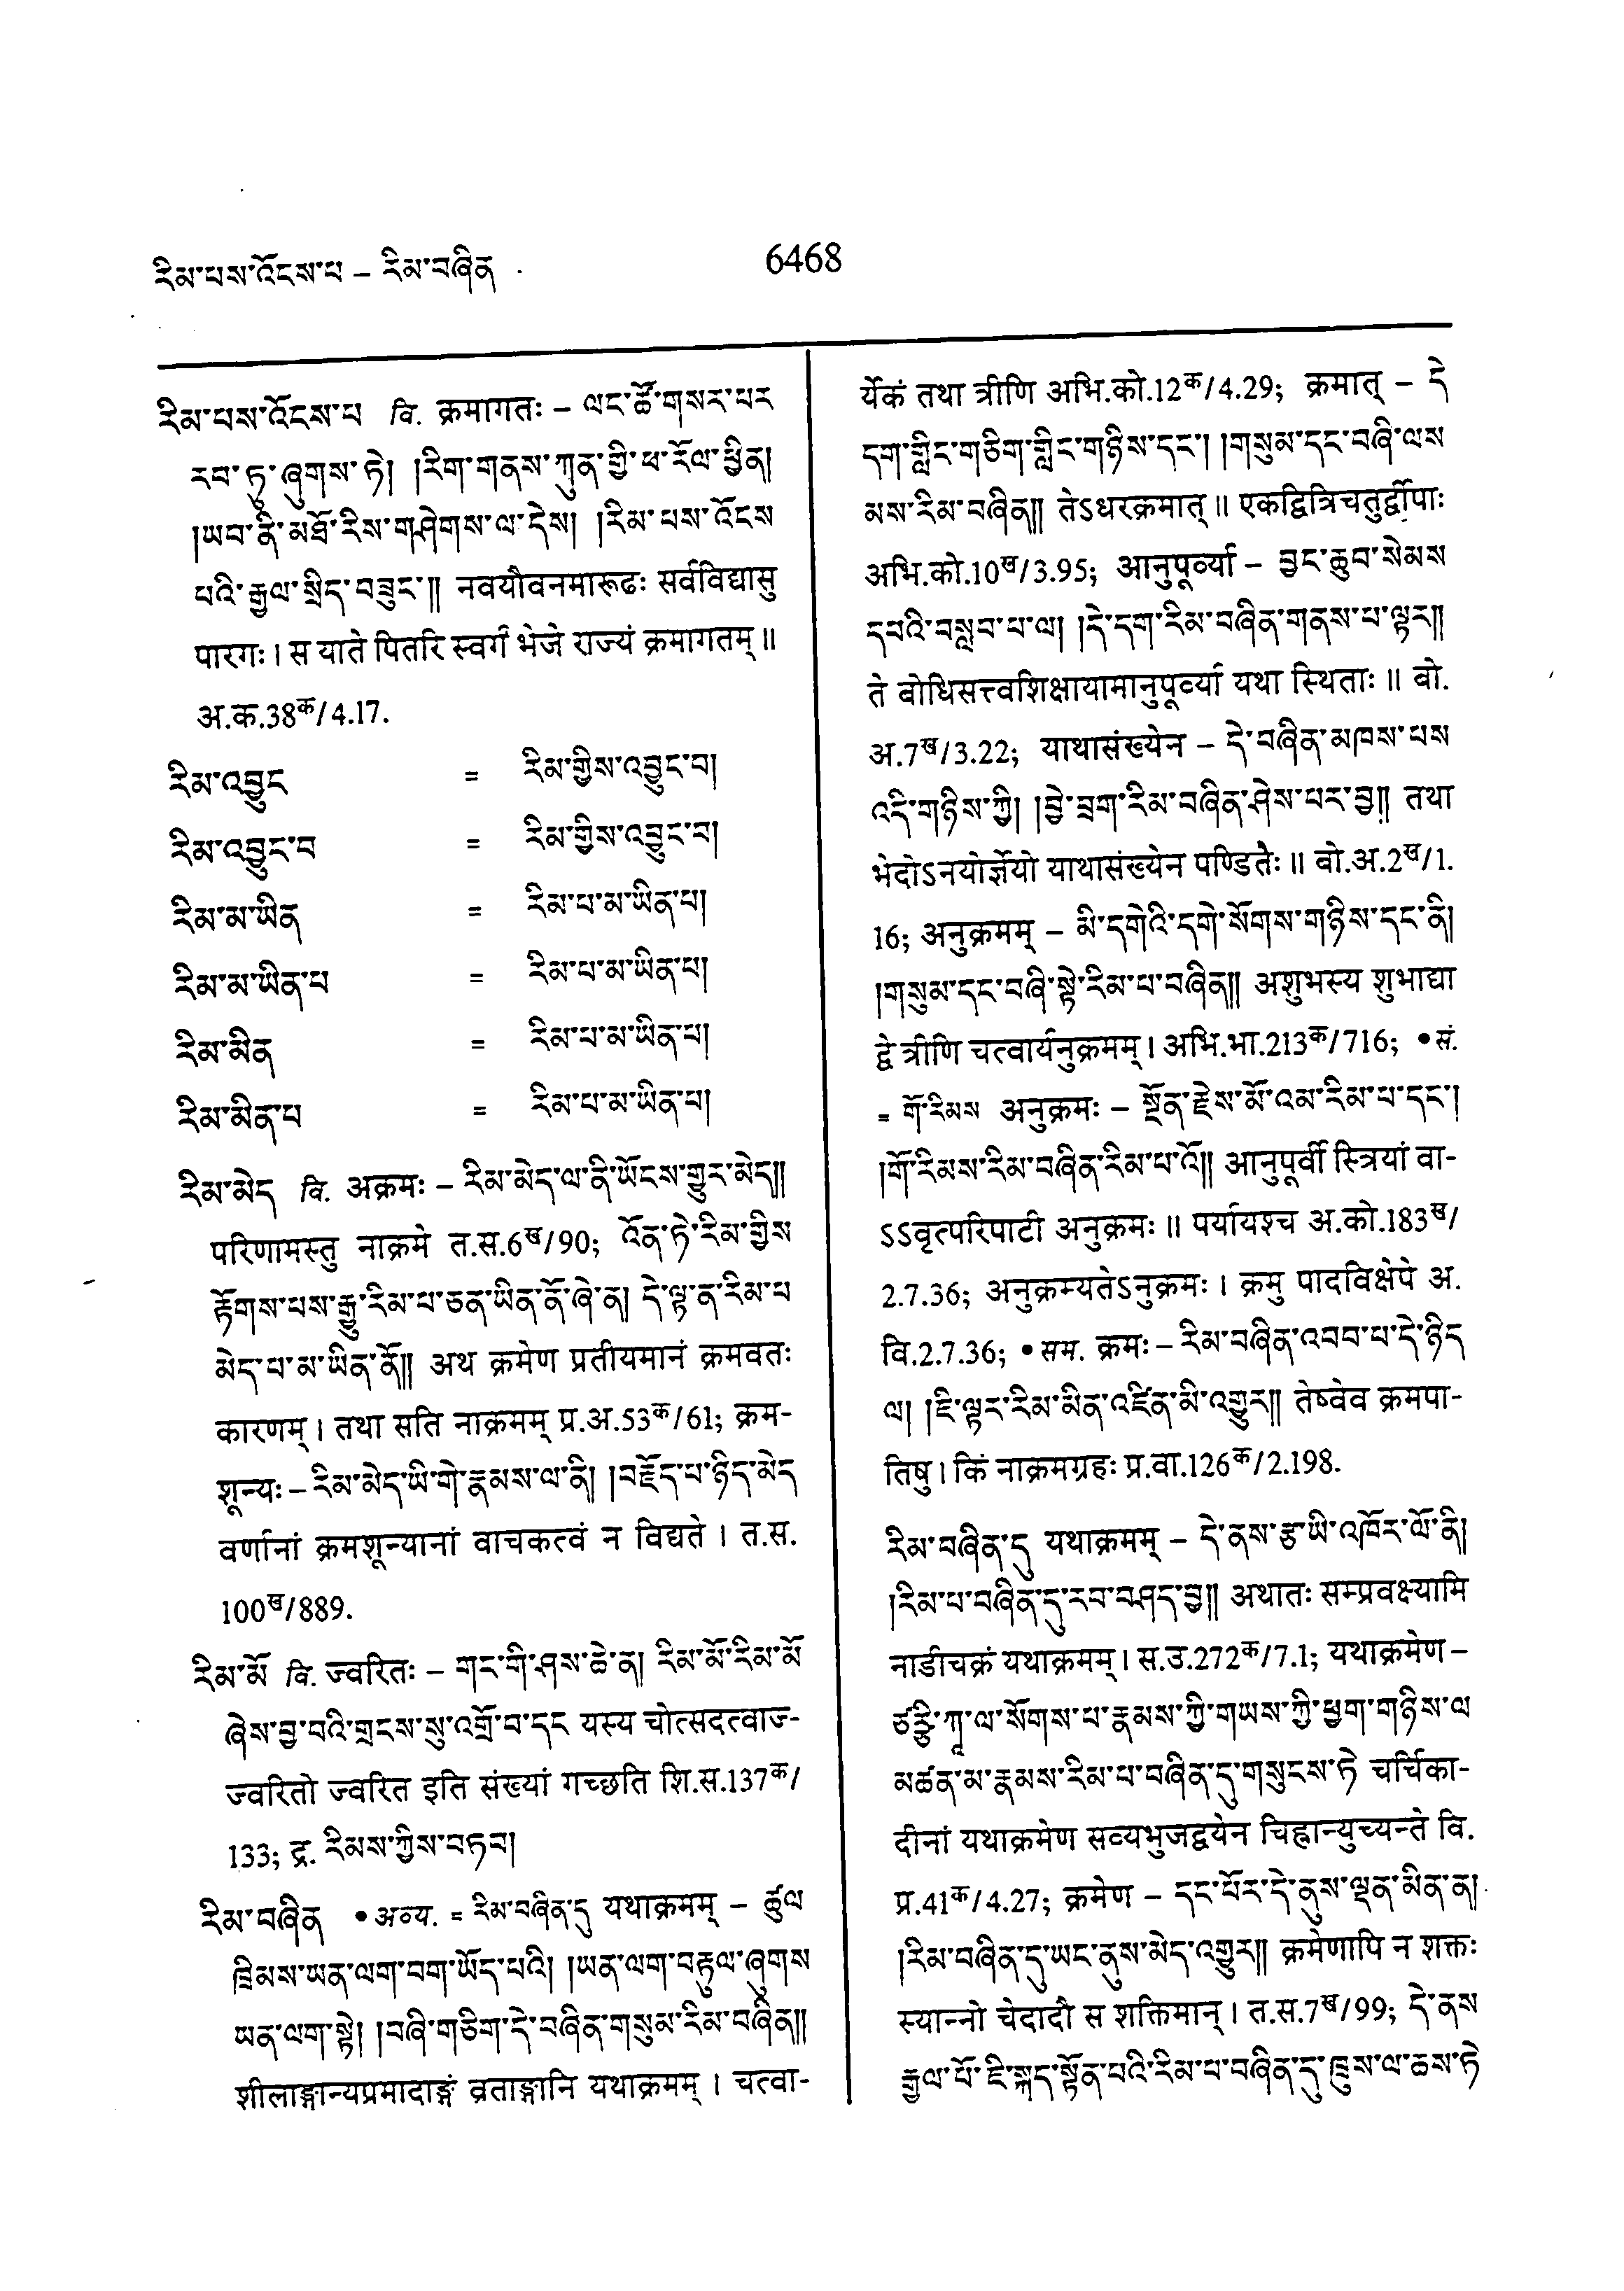 རིམ་པས་འོངས་པ – རིམ་བཞིན
6468
རིམ་པས་འོངས་པ वि. क्रमागतः – ལང་ཚོ་གསར་པར
རབ་ཏུ་ཞུགས་ཏེ། །རིག་གནས་ཀུན་གྱི་ཕ་རོལ་ཕྱིན།
།ཡབ་ནི་མཐོ་རིས་གཤེགས་ལ་དེས། །རིམ་པས་འོངས
པའི་རྒྱལ་སྲིད་བཟུང་༎ नवयौवनमारूढः सर्वविद्यासु
पारगः। स याते पितरि स्वर्गं भेजे राज्यं क्रमागतम्॥
अ.क.38क/4.17.
རིམ་འབྱུང = རིམ་གྱིས་འབྱུང་བ།
རིམ་འབྱུང་བ = རིམ་གྱིས་འབྱུང་བ།
རིམ་མ་ཡིན = རིམ་པ་མ་ཡིན་པ།
རིམ་མ་ཡིན་པ = རིམ་པ་མ་ཡིན་པ།
རིམ་མིན = རིམ་པ་མ་ཡིན་པ།
རིམ་མིན་པ = རིམ་པ་མ་ཡིན་པ།
རིམ་མེད वि. अक्रमः – རིམ་མེད་ལ་ནི་ཡོངས་གྱུར་མེད༎
परिणामस्तु नाक्रमे त.स.6ख/90; འོན་ཏེ་རིམ་གྱིས
རྟོགས་པས་རྒྱུ་རིམ་པ་ཅན་ཡིན་ནོ་ཞེ་ན། དེ་ལྟ་ན་རིམ་པ
མེད་པ་མ་ཡིན་ནོ༎ अथ क्रमेण प्रतीयमानं क्रमवतः
कारणम्। तथा सति नाक्रमम् प्र.अ.53क/61; क्रम-
शून्यः – རིམ་མེད་ཡི་གེ་རྣམས་ལ་ནི། །བརྗོད་པ་ཉིད་མེད
वर्णानां क्रमशून्यानां वाचकत्वं न विद्यते। त.स.
100ख/889.
རིམ་མོ वि. ज्वरितः – གང་གི་ཤས་ཆེ་ན། རིམ་མོ་རིམ་མོ
ཞེས་བྱ་བའི་གྲངས་སུ་འགྲོ་བ་དང यस्य चोत्सदत्वाज्-
ज्वरितो ज्वरित इति संख्यां गच्छति शि.स.137क/
133; द्र. རིམས་ཀྱིས་བཏབ།
རིམ་བཞིན •अव्य. = རིམ་བཞིན་དུ यथाक्रमम् – ཚུལ
ཁྲིམས་ཡན་ལག་བག་ཡོད་པའི། །ཡན་ལག་བརྟུལ་ཞུགས
ཡན་ལག་སྟེ། །བཞི་གཅིག་དེ་བཞིན་གསུམ་རིམ་བཞིན༎
शीलाङ्गान्यप्रमादाङ्गं व्रताङ्गानि यथाक्रमम्। चत्वा-
र्येकं तथा त्रीणि अभि.को.12क/4.29; क्रमात् – དེ
དག་གླིང་གཅིག་གླིང་གཉིས་དང་། །གསུམ་དང་བཞི་ལས
མས་རིམ་བཞིན༎ तेऽधरक्रमात्॥ एकद्वित्रिचतुर्द्वीपाः
अभि.को.10ख/3.95; आनुपूर्व्या – བྱང་ཆུབ་སེམས
དཔའི་བསླབ་པ་ལ། །དེ་དག་རིམ་བཞིན་གནས་པ་ལྟར༎
ते बोधिसत्त्वशिक्षायामानुपूर्व्या यथा स्थिताः॥ बो.
अ.7ख/3.22; याथासंख्येन – དེ་བཞིན་མཁས་པས
འདི་གཉིས་ཀྱི། །བྱེ་བྲག་རིམ་བཞིན་ཤེས་པར་བྱ༎ तथा
भेदोऽनयोर्ज्ञेयो याथासंख्येन पण्डितैः॥ बो.अ.2ख/1.
16; अनुक्रमम् – མི་དགེའི་དགེ་སོགས་གཉིས་དང་ནི།
།གསུམ་དང་བཞི་སྟེ་རིམ་པ་བཞིན༎ अशुभस्य शुभाद्या
द्वे त्रीणि चत्वार्यनुक्रमम्। अभि.भा.213क/716; •सं.
= གོ་རིམས अनुक्रमः – སྔོན་རྗེས་མོ་འམ་རིམ་པ་དང་།
།གོ་རིམས་རིམ་བཞིན་རིམ་པ་འོ༎ आनुपूर्वी स्त्रियां वा-
ऽऽवृत्परिपाटी अनुक्रमः॥ पर्यायश्च अ.को.183ख/
2.7.36; अनुक्रम्यतेऽनुक्रमः। क्रमु पादविक्षेपे अ.
वि.2.7.36; •सम. क्रमः – རིམ་བཞིན་འབབ་པ་དེ་ཉིད
ལ། །ཇི་ལྟར་རིམ་མིན་འཛིན་མི་འགྱུར༎ तेष्वेव क्रमपा-
तिषु। किं नाक्रमग्रहः प्र.वा.126क/2.198.
རིམ་བཞིན་དུ यथाक्रमम् – དེ་ནས་རྩ་ཡི་འཁོར་ལོ་ནི།
།རིམ་པ་བཞིན་དུ་རབ་བཤད་བྱ༎ अथातः सम्प्रवक्ष्यामि
नाडीचक्रं यथाक्रमम्। स.उ.272क/7.1; यथाक्रमेण –
ཙརྩི་ཀཱ་ལ་སོགས་པ་རྣམས་ཀྱི་གཡས་ཀྱི་ཕྱག་གཉིས་ལ
མཚན་མ་རྣམས་རིམ་པ་བཞིན་དུ་གསུངས་ཏེ चर्चिका-
दीनां यथाक्रमेण सव्यभुजद्वयेन चिह्नान्युच्यन्ते वि.
प्र.41क/4.27; क्रमेण – དང་པོར་དེ་ནུས་ལྡན་མིན་ན།
།རིམ་བཞིན་དུ་ཡང་ནུས་མེད་འགྱུར༎ क्रमेणापि न शक्तः
स्यान्नो चेदादौ स शक्तिमान्। त.स.7ख/99; དེ་ནས
རྒྱལ་པོ་ཇི་སྐད་སྟོན་པའི་རིམ་པ་བཞིན་དུ་ཁྲུས་ལ་ཆས་ཏེ